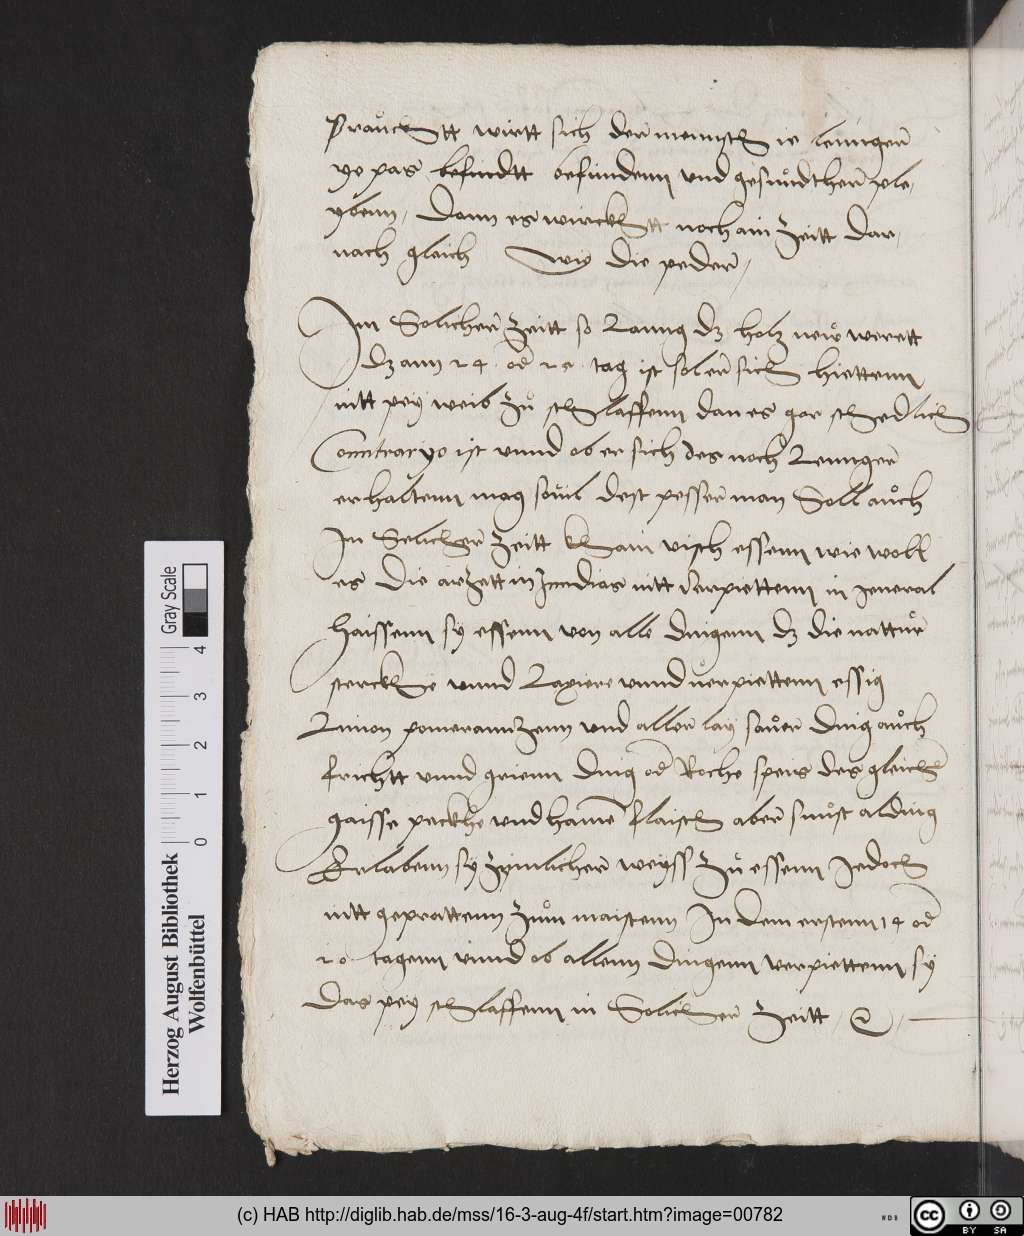 Prauchtt wirtt sich der mennsch ie lennger
ye pas befindtt befinden vnd gesundther ple,
ybenn, Dann es wirckhtt noch ain Zeitt dar,
nach gleich wie die peder,
Im Solicher Zeitt so Lanng dz holz new werett
dz ann 14 od 20 tag ist sol er sich hiettenn
nitt pey weib Zu schlaffenn dan es gar schedlich
Conntraryo ist vnnd ob er sich des noch Lennger
erhaltenn mag souil dest pesser man Soll auch
In Solicher Zeitt khain visch essenn wie woll
es die arzett in Inndias nitt verpiettenn in Jeneral
haissenn sy essenn von alle dingenn dz die nattur
sterckhe vnnd verpiettenn essig
Limon pomerannzenn vnd aller lay sauer ding auch
frichtt vnnd grienn ding od Roche speis des gleichen
gaisse peckhe vnd hame flaisch aber sunst alding
Erlabenn sy Zymlicher weyss Zu essenn Jedoch
nitt geprattenn Zum maistenn In dem erstenn 14 od
20 tagenn vnnd ob allenn dingenn verpiettenn sy
das pey schlaffenn in Solicher Zeitt,
Gray Scale
0 1 2 3 4
Herzog August Bibliothek
Wolfenbüttel
(c) HAB http://diglib.hab.de/mss/16-3-aug-4f/start.htm?image=00782
cc BY SA